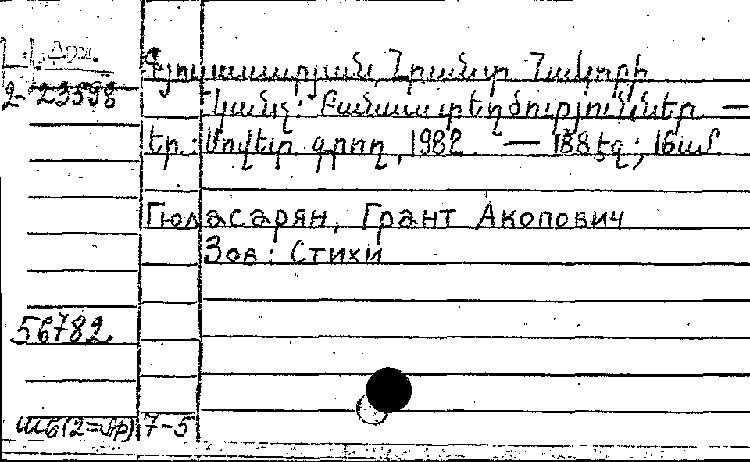 Գյուլասարյան Հրանտ Հակոբի
2-23598
Կանչ: Բանաստեղծություններ. —
Եր.: Սովետ. գրող, 1982 — 188 էգ; 16սմ
Гюласарян, Грант Акопович
Зов: Стихи
56782
7-5